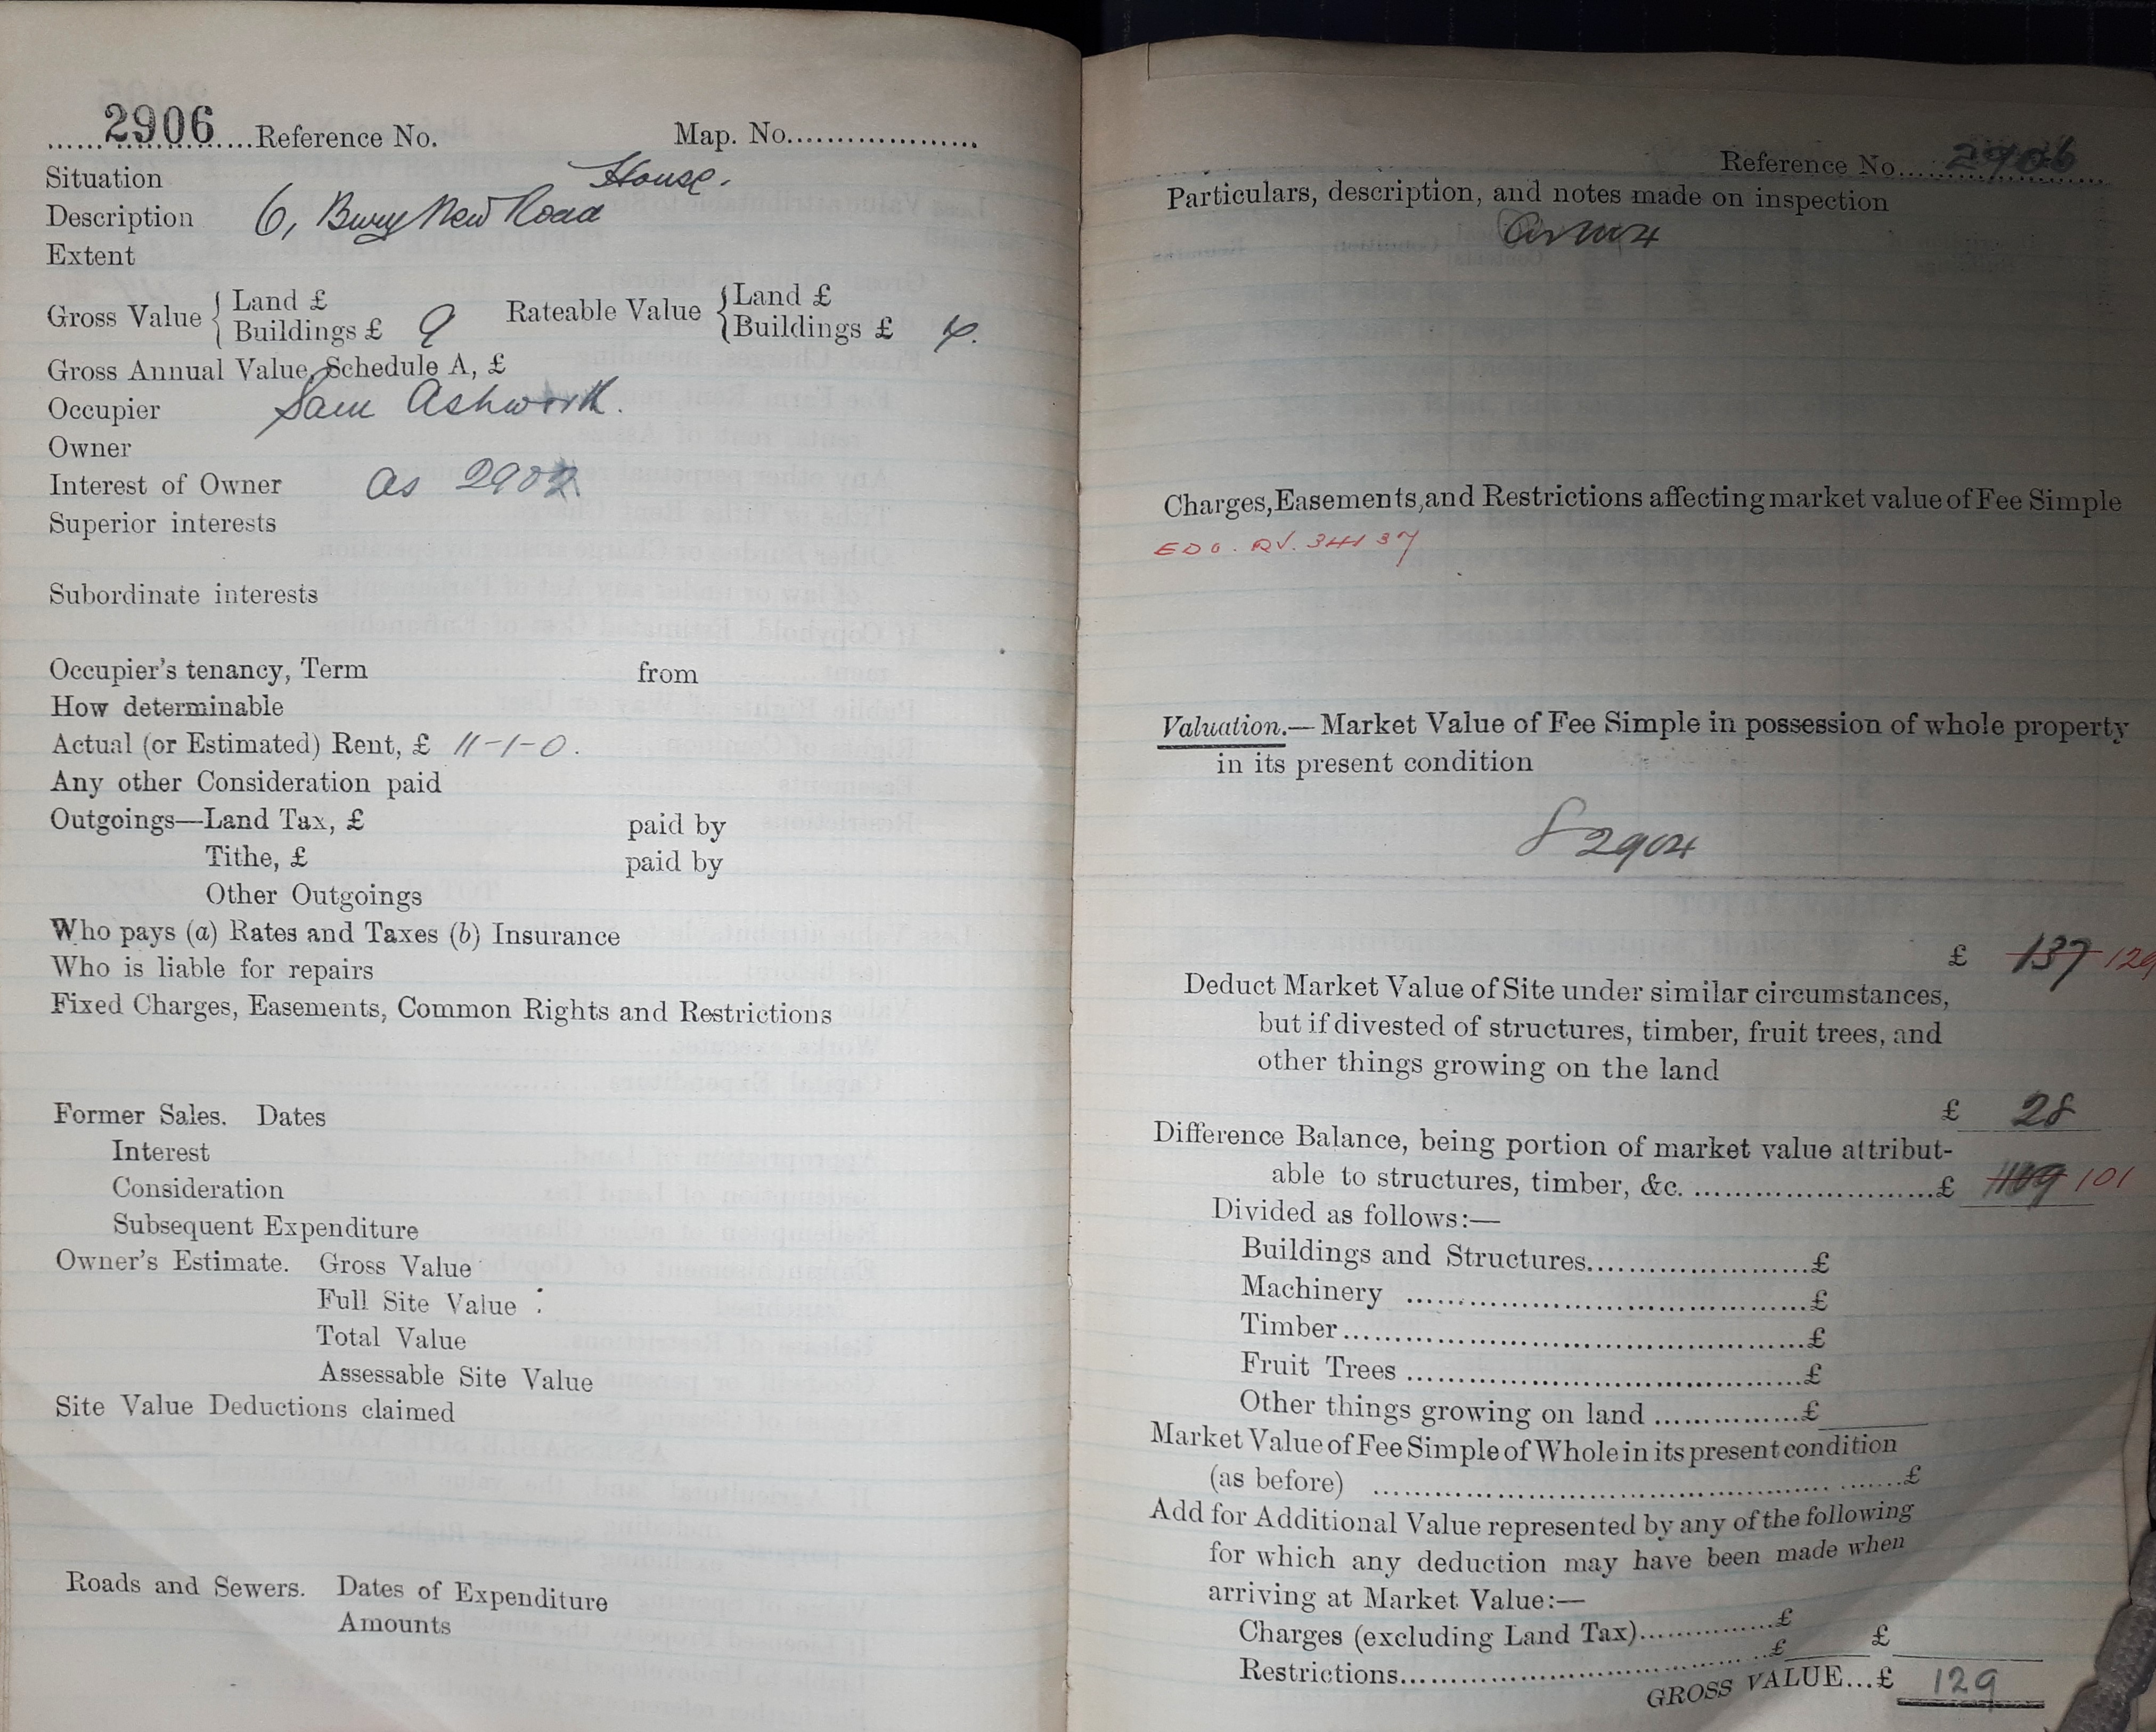 2906 Reference No. Map. No.
Situation House.
Description 6, Bury New Road
Extent
Gross Value { Land £
Buildings £ 9
Rateable Value { Land £
Buildings £
Gross Annual Value, Schedule A, £
Occupier Sam Ashworth.
Owner
Interest of Owner as 2902
Superior interests
Subordinate interests
Occupier's tenancy, Term from
How determinable
Actual (or Estimated) Rent, £ 11-1-0.
Any other Consideration paid
Outgoings—Land Tax, £ paid by
Tithe, £ paid by
Other Outgoings
Who pays (a) Rates and Taxes (b) Insurance
Who is liable for repairs
Fixed Charges, Easements, Common Rights and Restrictions
Former Sales. Dates
Interest
Consideration
Subsequent Expenditure
Owner's Estimate. Gross Value
Full Site Value
Total Value
Assessable Site Value
Site Value Deductions claimed
Roads and Sewers. Dates of Expenditure
Amounts
Reference No. 2906
Particulars, description, and notes made on inspection
Charges, Easements, and Restrictions affecting market value of Fee Simple
Valuation.—Market Value of Fee Simple in possession of whole property
in its present condition
2904
£ 137 129
Deduct Market Value of Site under similar circumstances,
but if divested of structures, timber, fruit trees, and
other things growing on the land
£ 28
Difference Balance, being portion of market value attribut-
able to structures, timber, &c. £ 109 101
Divided as follows:—
Buildings and Structures £
Machinery £
Timber £
Fruit Trees £
Other things growing on land £
Market Value of Fee Simple of Whole in its present condition
(as before) £
Add for Additional Value represented by any of the following
for which any deduction may have been made when
arriving at Market Value:—
Charges (excluding Land Tax) £
Restrictions £ £
GROSS VALUE...£ 129